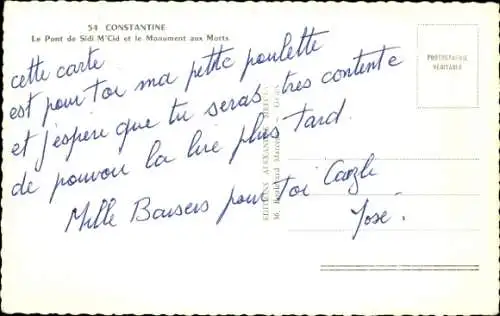 54 CONSTANTINE
Le Pont de Sidi M'Cid et le Monument aux Morts
PHOTOGRAPHIE
VÉRITABLE
cette carte
est pour toi ma petite poulette
et j'espère que tu seras très contente
de pouvoir la lire plus tard.
Mille Baisers pour toi
José.